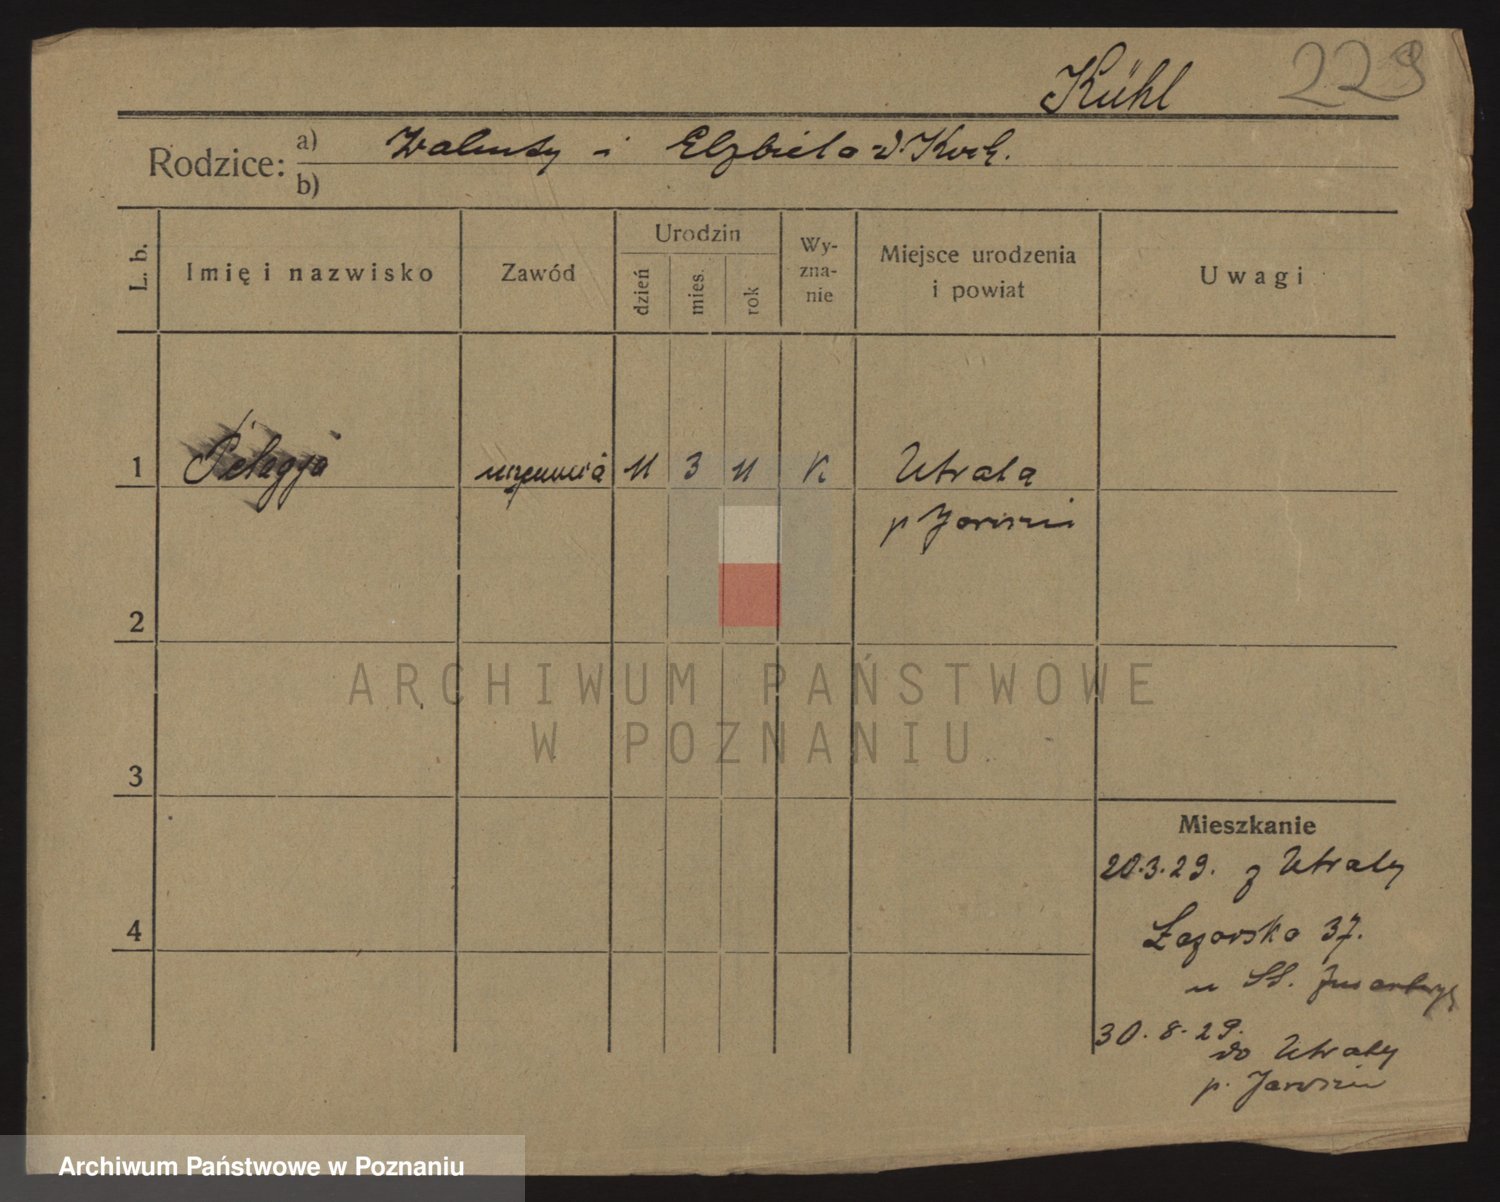 Kühl 229
Rodzice: a) Walenty i Elżbieta d. Koch.
b)
L. b. Imię i nazwisko Zawód Urodzin dzień mies. rok Wyznanie Miejsce urodzenia i powiat Uwagi
1 Pelagja uczennica 11 3 11 K Utrata
p Jarocin
2
3
4
Mieszkanie
20.3.29. z Utraty
Łazarska 37.
u SS.
30.8.29.
do Utraty
p. Jarocin
ARCHIWUM PAŃSTWOWE
W POZNANIU
Archiwum Państwowe w Poznaniu